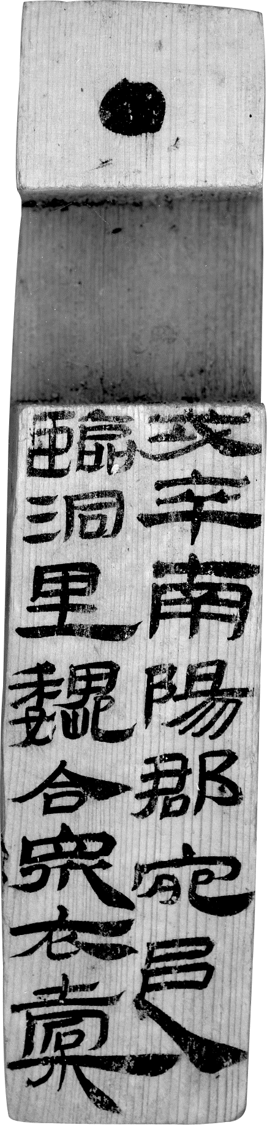 戍卒南陽郡宛邑
臨洞里魏合眾衣橐